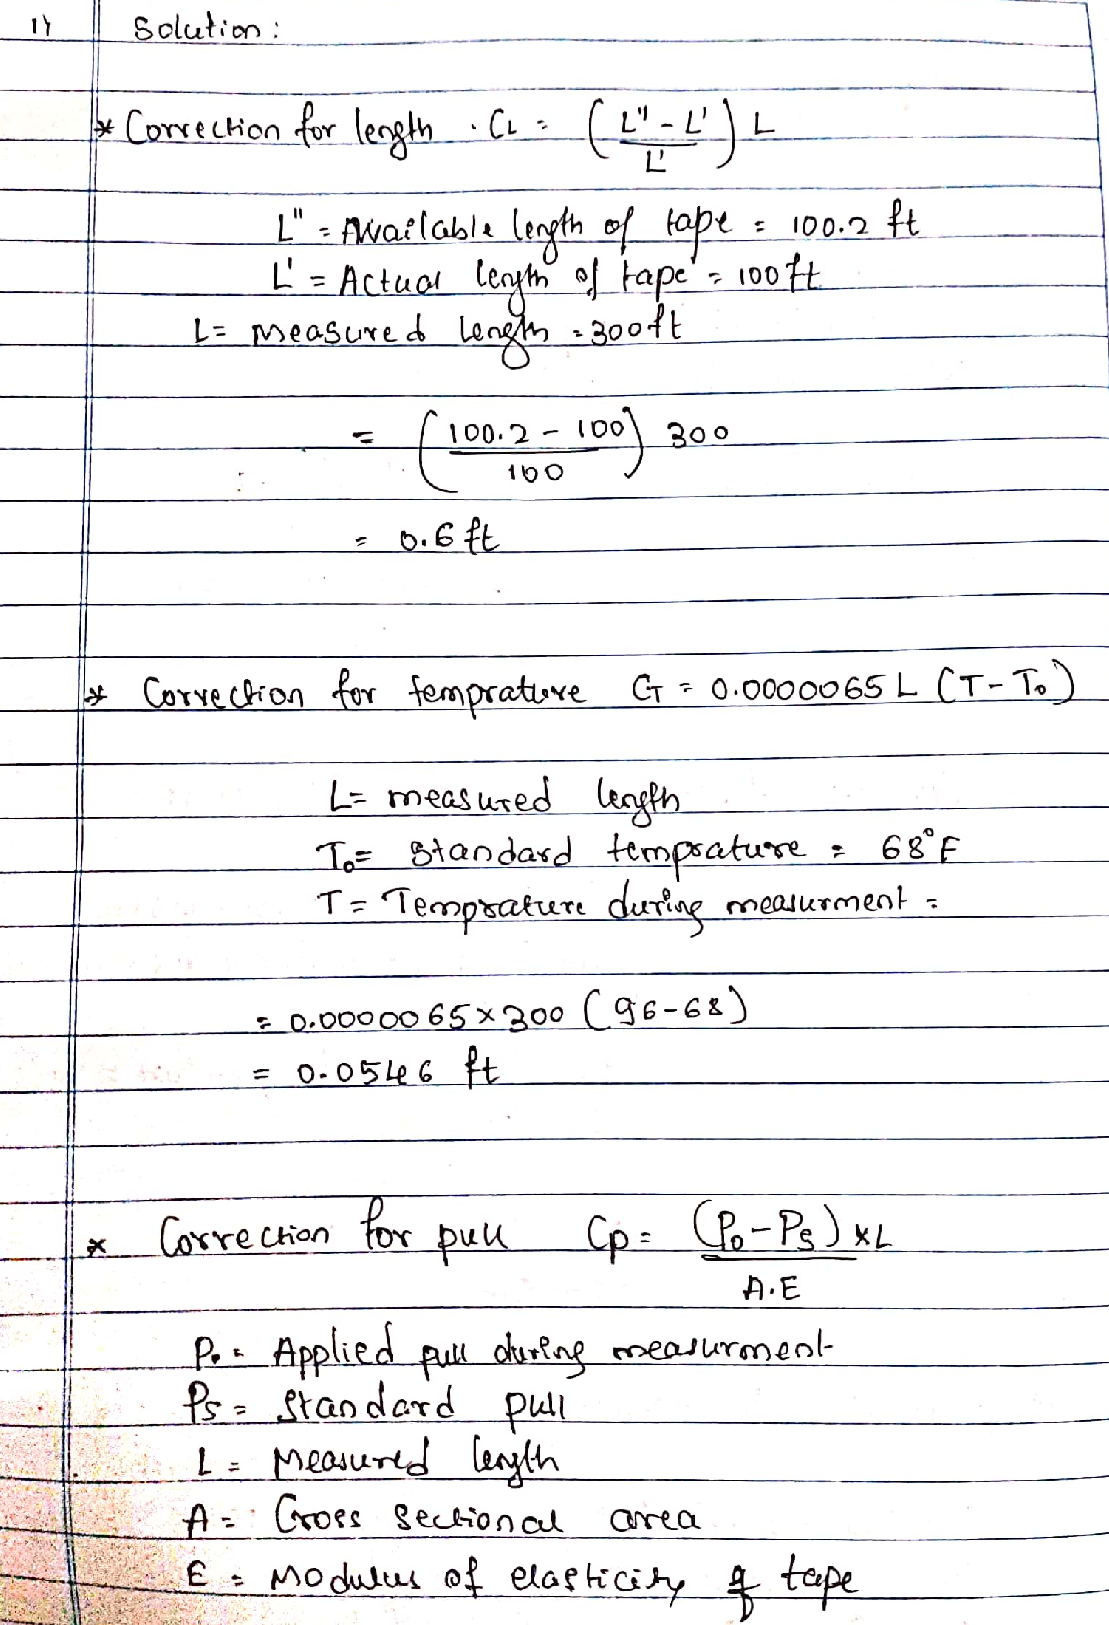 1) Solution :
* Correction for length . CL = ( L" - L' / L' ) L
L" = Available length of tape = 100.2 ft
L' = Actual length of tape = 100 ft
L = measured length = 300 ft
= ( 100.2 - 100 / 100 ) 300
= 0.6 ft
* Correction for temprature CT = 0.0000065 L (T - To)
L = measured length
To = Standard temprature = 68°F
T = Temprature during measurment =
= 0.0000065 x 300 (96-68)
= 0.0546 ft
* Correction for pull Cp = (Po - Ps) xL / A.E
Po = Applied pull during measurment
Ps = Standard pull
L = Measured length
A = Cross Sectional area
E = Modulus of elasticity of tape